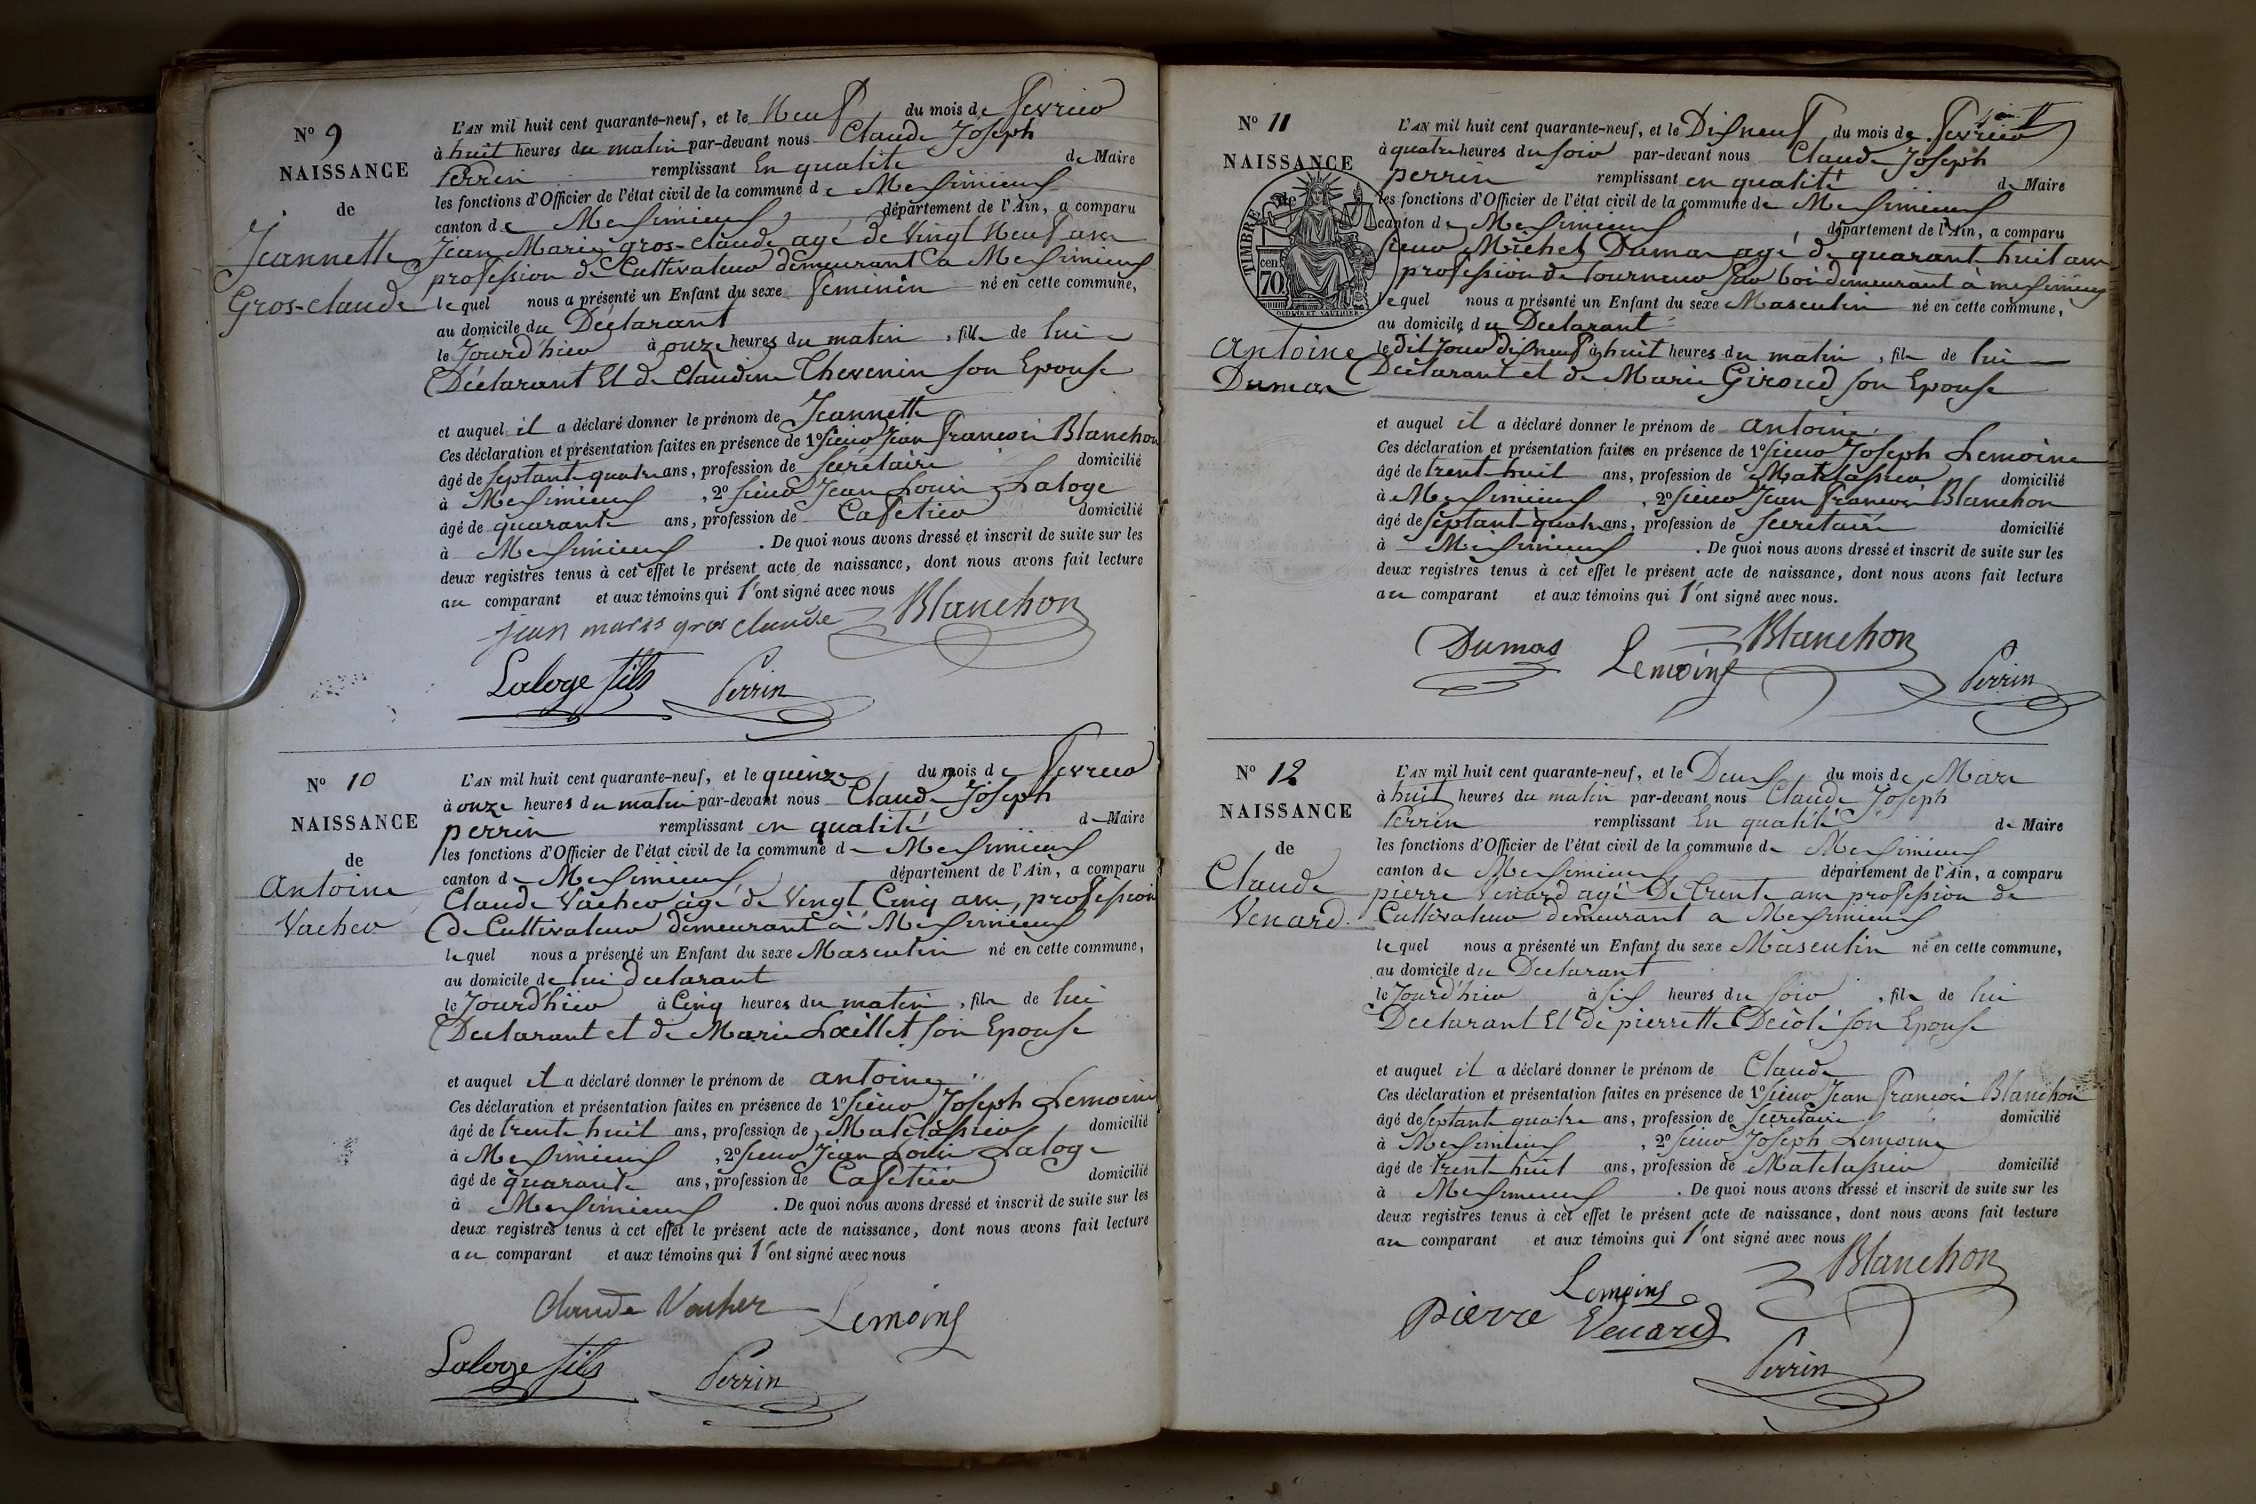 N° 9
NAISSANCE
de
Jeannette
Gros-claude
L'AN mil huit cent quarante-neuf, et le Neuf du mois de fevrier
à huit heures du matin par-devant nous Claude Joseph
Perrin remplissant En qualité de Maire
les fonctions d'Officier de l'état civil de la commune de Meximieux
canton de Meximieux département de l'Ain, a comparu
Jean Marie gros-claude agé de Vingt Neuf ans
profession de Cultivateur demeurant a Meximieux
lequel nous a présenté un Enfant du sexe feminin né en cette commune,
au domicile du Déclarant
le Jourd'hier à onze heures du matin, fille de lui
Déclarant Et de Claudine Thevenin son Epouse
et auquel il a déclaré donner le prénom de Jeannette
Ces déclaration et présentation faites en présence de 1° sieur Jean francois Blanchon
âgé de septante quatre ans, profession de secrétaire domicilié
à Meximieux, 2° sieur Jean Louis Laloge
âgé de quarante ans, profession de Cafetier domicilié
à Meximieux. De quoi nous avons dressé et inscrit de suite sur les
deux registres tenus à cet effet le présent acte de naissance, dont nous avons fait lecture
au comparant et aux témoins qui l'ont signé avec nous
jean maris gros claude Blanchon
Laloge fils Perrin
N° 10
NAISSANCE
de
antoine
Vacher
L'AN mil huit cent quarante-neuf, et le quinze du mois de fevrier
à onze heures du matin par-devant nous Claude Joseph
perrin remplissant en qualité de Maire
les fonctions d'Officier de l'état civil de la commune de Meximieux
canton de Meximieux département de l'Ain, a comparu
Claude Vacher agé de Vingt Cinq ans, profession
de Cultivateur demeurant à Meximieux
lequel nous a présenté un Enfant du sexe Masculin né en cette commune,
au domicile de lui declarant
le Jourd'hier à Cinq heures du matin, fils de lui
Declarant et de Marie son Epouse
et auquel il a déclaré donner le prénom de antoine
Ces déclaration et présentation faites en présence de 1° sieur Joseph Lemoine
âgé de trente huit ans, profession de Matelassier domicilié
à Meximieux, 2° sieur Jean Louis Laloge
âgé de quarante ans, profession de Cafetier domicilié
à Meximieux. De quoi nous avons dressé et inscrit de suite sur les
deux registres tenus à cet effet le présent acte de naissance, dont nous avons fait lecture
au comparant et aux témoins qui l'ont signé avec nous
Claude Vacher Lemoine
Laloge fils Perrin
N° 11
NAISSANCE
de
TIMBRE
70 cen.
antoine
Dumas
L'AN mil huit cent quarante-neuf, et le Dixneuf du mois de fevrier
à quatre heures du soir par-devant nous Claude Joseph
perrin remplissant en qualité de Maire
les fonctions d'Officier de l'état civil de la commune de Meximieux
canton de Meximieux département de l'Ain, a comparu
sieur Michel Dumas agé de quarant huit ans
profession de tourneur sur bois demeurant à meximieux
lequel nous a présenté un Enfant du sexe Masculin né en cette commune,
au domicile du Declarant
le dit Jour dixneuf à huit heures du matin, fils de lui
Declarant et de Marie Giroud son Epouse
et auquel il a déclaré donner le prénom de antoine
Ces déclaration et présentation faites en présence de 1° sieur Joseph Lemoine
âgé de trent huit ans, profession de Matelassier domicilié
à Meximieux, 2° sieur Jean francois Blanchon
âgé de septant quatre ans, profession de secretaire domicilié
à Meximieux. De quoi nous avons dressé et inscrit de suite sur les
deux registres tenus à cet effet le présent acte de naissance, dont nous avons fait lecture
au comparant et aux témoins qui l'ont signé avec nous.
Dumas Lemoine Blanchon Perrin
N° 12
NAISSANCE
de
Claude
Venard.
L'AN mil huit cent quarante-neuf, et le Deux du mois de Mars
à huit heures du matin par-devant nous Claude Joseph
Perrin remplissant En qualité de Maire
les fonctions d'Officier de l'état civil de la commune de Meximieux
canton de Meximieux département de l'Ain, a comparu
pierre Venard agé De trente ans profession de
Cultivateur demeurant a Meximieux
lequel nous a présenté un Enfant du sexe Masculin né en cette commune,
au domicile du Declarant
le Jourd'hier à six heures du soir, fils de lui
Declarant Et de pierrette son Epouse
et auquel il a déclaré donner le prénom de Claude
Ces déclaration et présentation faites en présence de 1° sieur Jean francois Blanchon
âgé de septant quatre ans, profession de secretaire domicilié
à Meximieux, 2° sieur Joseph Lemoine
âgé de trent huit ans, profession de Matelassier domicilié
à Meximieux. De quoi nous avons dressé et inscrit de suite sur les
deux registres tenus à cet effet le présent acte de naissance, dont nous avons fait lecture
au comparant et aux témoins qui l'ont signé avec nous
Lemoine Blanchon
pierre Venard
Perrin